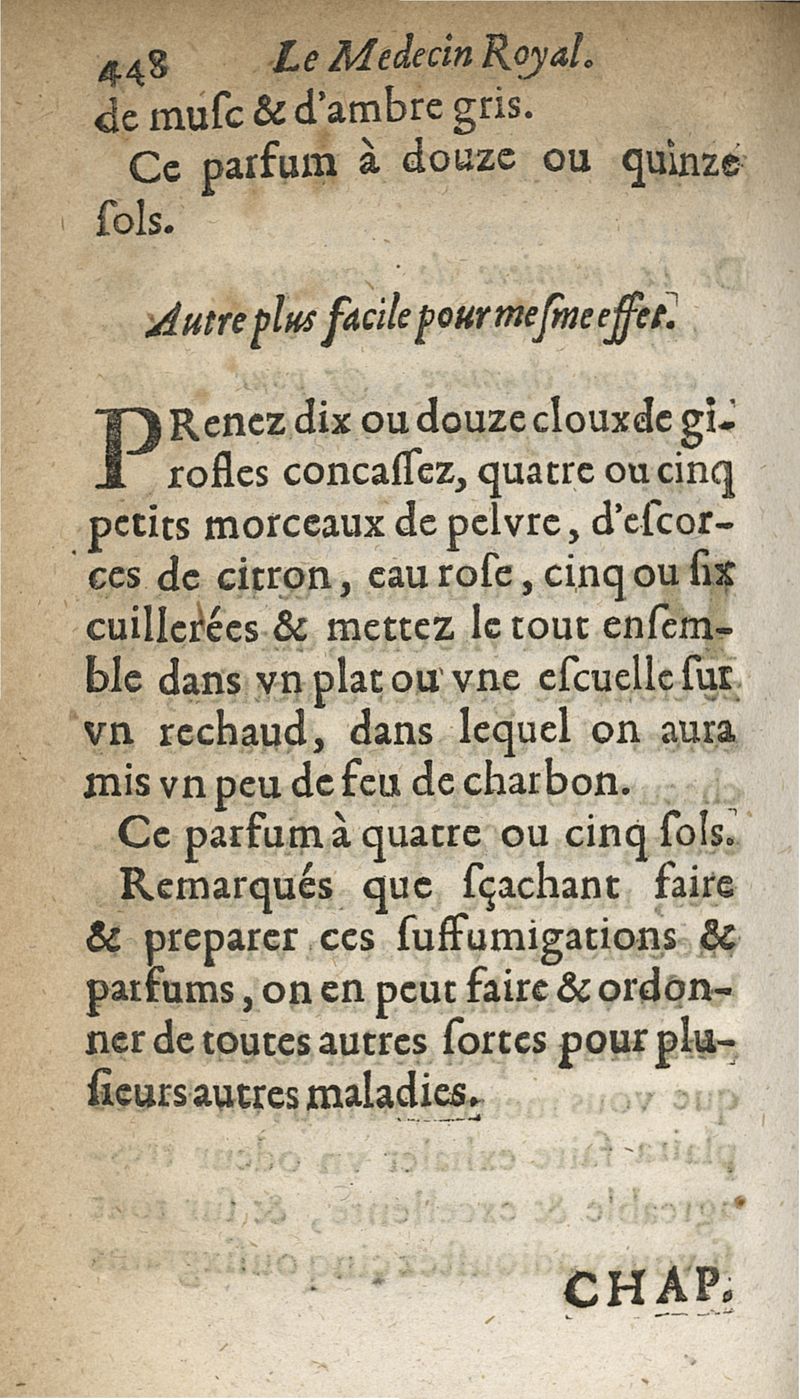 448 Le Medecin Royal.
de muſc & d'ambre gris.
Ce parfum à douze ou quinze
ſols.
Autre plus facile pour meſme effet.
PRenez dix ou douze cloux de gi-
rofles concaſſez, quatre ou cinq
petits morceaux de pelvre, d'eſcor-
ces de citron, eau roſe, cinq ou ſix
cuillerées & mettez le tout enſem-
ble dans vn plat ou vne eſcuelle ſur
vn rechaud, dans lequel on aura
mis vn peu de feu de charbon.
Ce parfum à quatre ou cinq ſols.
Remarqués que ſçachant faire
& preparer ces ſuffumigations &
parfums, on en peut faire & ordon-
ner de toutes autres ſortes pour plu-
ſieurs autres maladies.
CHAP.